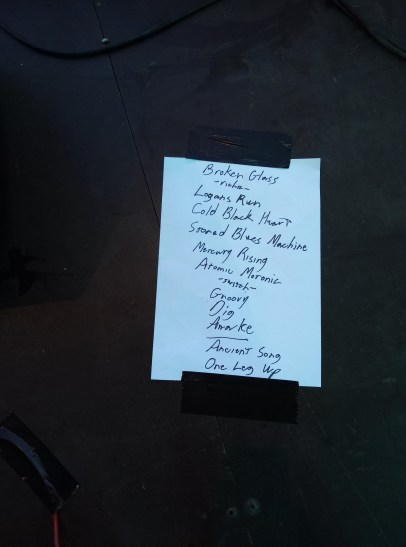 Broken Glass
Logans Run
Cold Black Heart
Stoned Blues Machine
Mercury Rising
Atomic Moronic
-switch-
Groovy
Dig
Awake
Ancient Song
One Leg Up